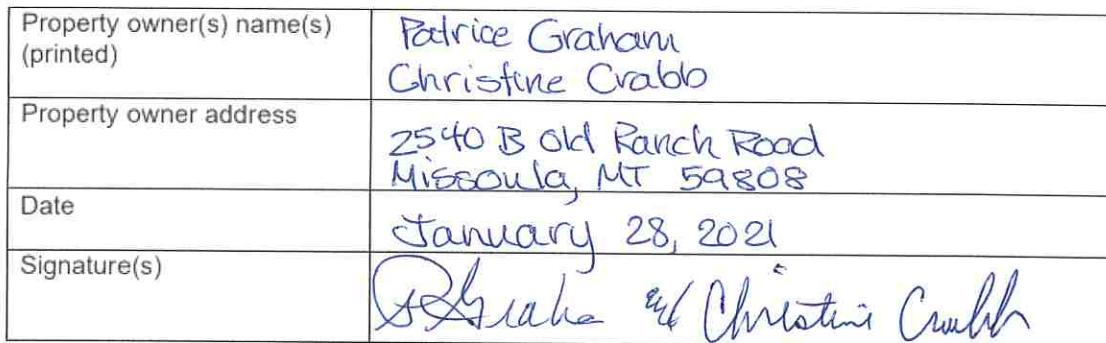 Property owner(s) name(s)
(printed)
Patrice Graham
Christine Crabb
Property owner address
2540 B Old Ranch Road
Missoula, MT 59808
Date
January 28, 2021
Signature(s)
Christine Crabb